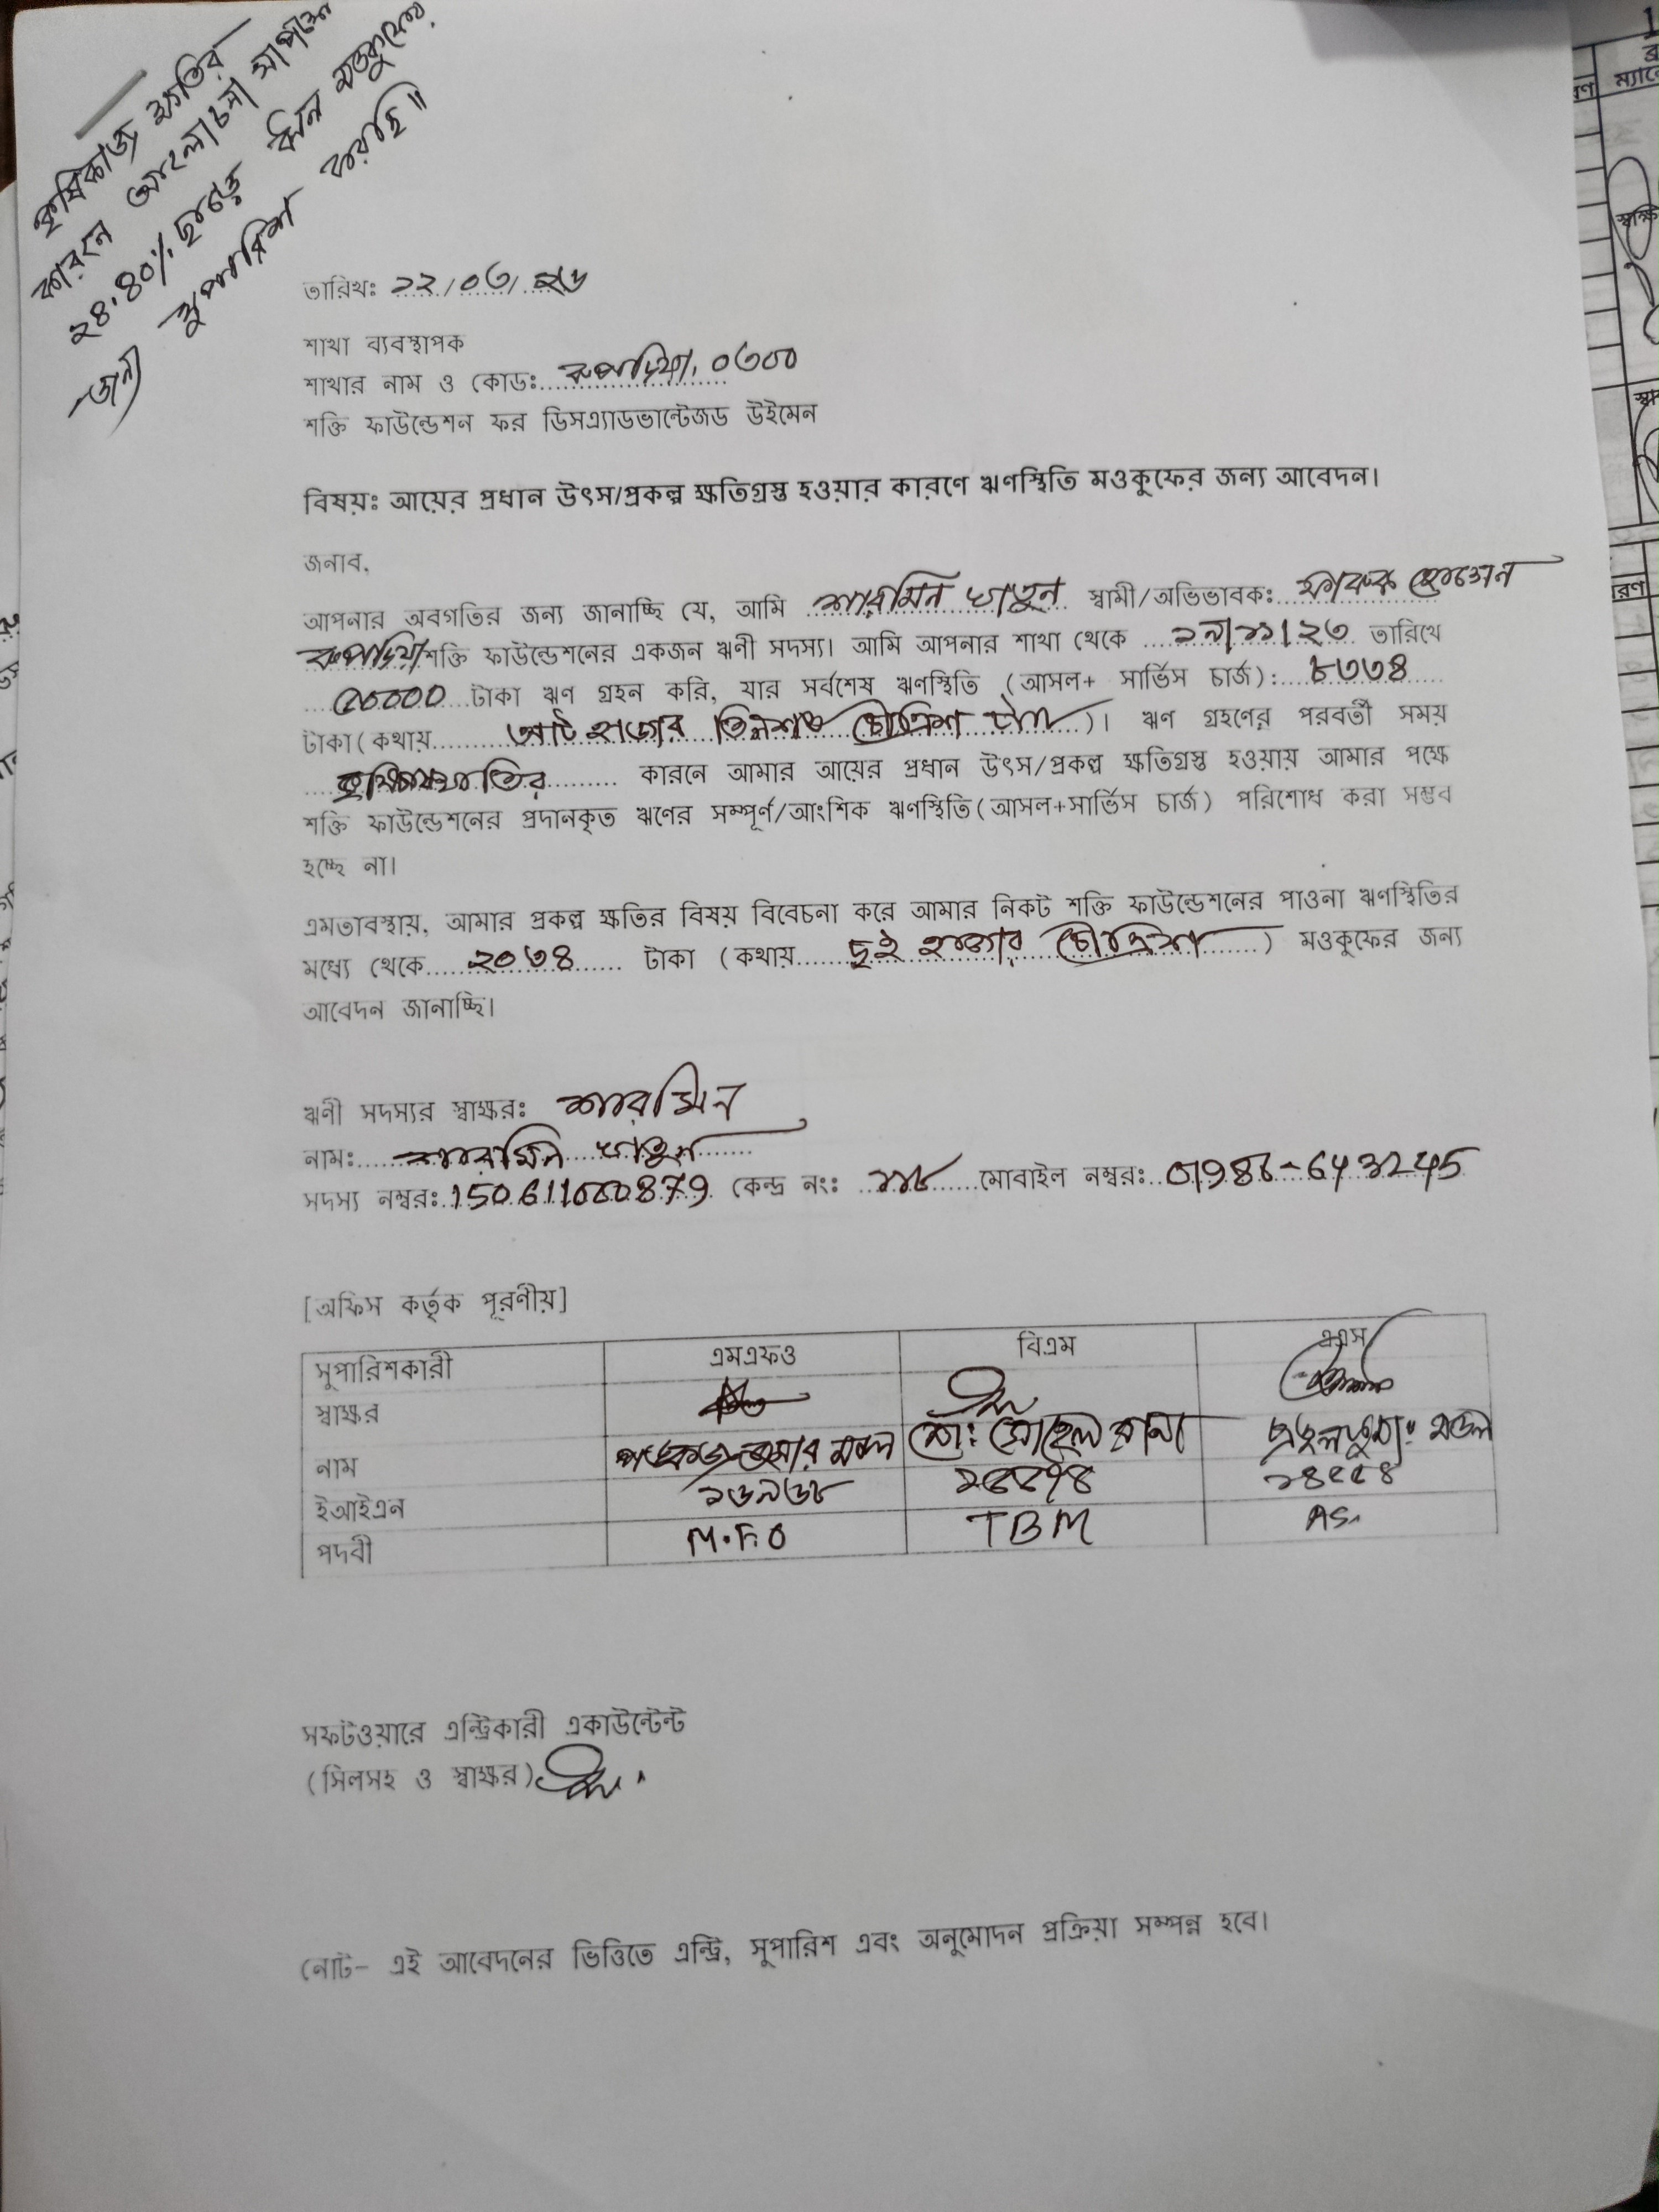 কৃষিকাজ ক্ষতির
কারনে আলোচনা সাপেক্ষে
২৪.৪০% ছাড়ে ঋন মওকুফের
জন্য সুপারিশ করছি॥
তারিখঃ ১২/০৩/২৬
শাখা ব্যবস্থাপক
শাখার নাম ও কোডঃ রুপদিয়া, ০৩০০
শক্তি ফাউন্ডেশন ফর ডিসএ্যাডভান্টেজড উইমেন
বিষয়ঃ আয়ের প্রধান উৎস/প্রকল্প ক্ষতিগ্রস্ত হওয়ার কারণে ঋণস্থিতি মওকুফের জন্য আবেদন।
জনাব,
আপনার অবগতির জন্য জানাচ্ছি যে, আমি শারমিন খাতুন স্বামী/অভিভাবকঃ ফারুক হোসেন
রুপদিয়া শক্তি ফাউন্ডেশনের একজন ঋণী সদস্য। আমি আপনার শাখা থেকে ১৯/১১/২৩ তারিখে
৫০০০০ টাকা ঋণ গ্রহন করি, যার সর্বশেষ ঋণস্থিতি (আসল+ সার্ভিস চার্জ): ৮৩৩৪
টাকা(কথায় আট হাজার তিনশত চৌত্রিশ টাকা)। ঋণ গ্রহণের পরবর্তী সময়
কারনে আমার আয়ের প্রধান উৎস/প্রকল্প ক্ষতিগ্রস্ত হওয়ায় আমার পক্ষে
শক্তি ফাউন্ডেশনের প্রদানকৃত ঋণের সম্পূর্ণ/আংশিক ঋণস্থিতি(আসল+সার্ভিস চার্জ) পরিশোধ করা সম্ভব
হচ্ছে না।
এমতাবস্থায়, আমার প্রকল্প ক্ষতির বিষয় বিবেচনা করে আমার নিকট শক্তি ফাউন্ডেশনের পাওনা ঋণস্থিতির
মধ্যে থেকে ২০৩৪ টাকা (কথায় দুই হাজার চৌত্রিশ) মওকুফের জন্য
আবেদন জানাচ্ছি।
ঋণী সদস্যর স্বাক্ষরঃ শারমিন
নামঃ শারমিন খাতুন
সদস্য নম্বরঃ কেন্দ্র নংঃ ১১৮ মোবাইল নম্বরঃ
[অফিস কর্তৃক পূরণীয়]
সুপারিশকারী এমএফও বিএম এএস
স্বাক্ষর
নাম পঙ্কজ কুমার মন্ডল মোঃ সোহেল রানা
ইআইএন ১৬৯৬৮
পদবী M.F.O TBM AS.
সফটওয়ারে এন্ট্রিকারী একাউন্টেন্ট
(সিলসহ ও স্বাক্ষর)
নোট- এই আবেদনের ভিত্তিতে এন্ট্রি, সুপারিশ এবং অনুমোদন প্রক্রিয়া সম্পন্ন হবে।